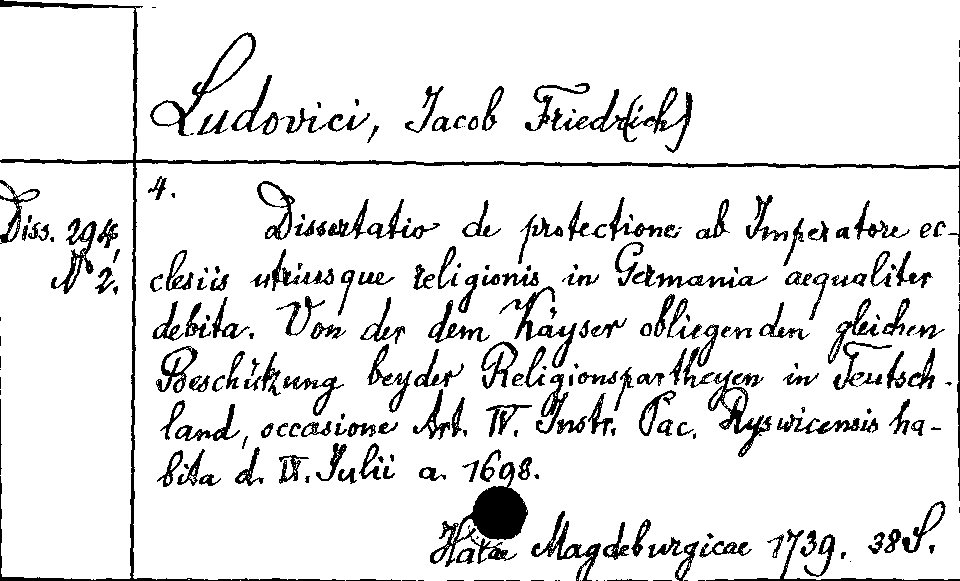 Ludovici, Jacob Friedr(ich)
4.
Diss. 294,
N° 2.
Dissertatio de protectione ab Imperatore ec-
clesiis utriusque religionis in Germania aequaliter
debita. Von der dem Käyser obliegenden gleichen
Beschützung beyder Religionspartheyen in Teutsch-
land, occasione Art. IV. Instr. Pac. Ryswicensis ha-
bita d. II. Julii a. 1698.
Halae Magdeburgicae 1739. 38 S.